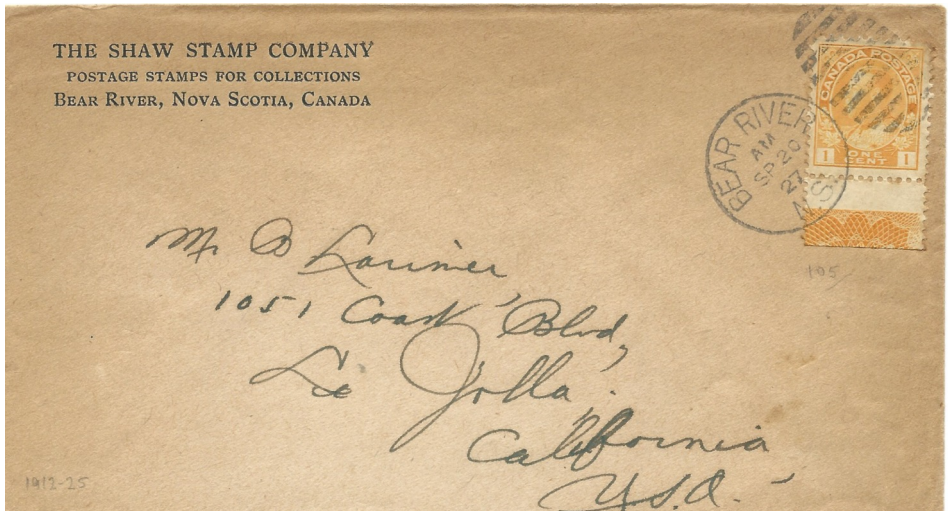 THE SHAW STAMP COMPANY
POSTAGE STAMPS FOR COLLECTIONS
BEAR RIVER, NOVA SCOTIA, CANADA
CANADA POSTAGE
1 ONE CENT 1
BEAR RIVER
AM
SP 20
27
N.S.
Mr D Larimer
1051 Coast Blvd,
La Jolla.
California
U.S.A.
105
1912-25